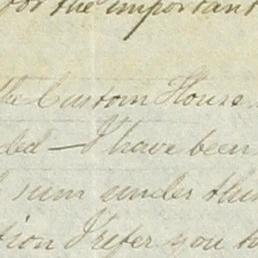 for the important
the Custom House
ded — I have been
sum under this
tion I refer you to